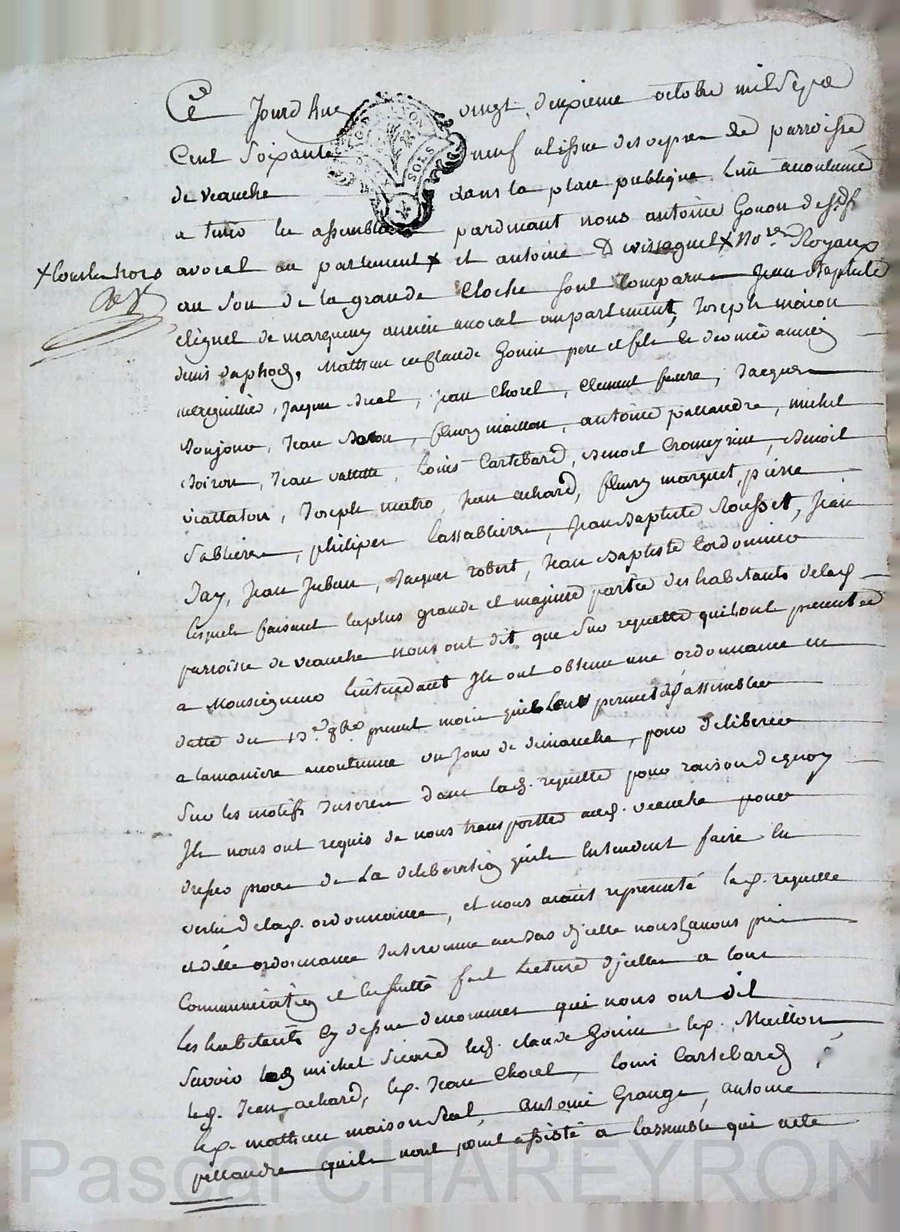 Ce Jourdhuy vingt deuxieme octobre mil Sept
Cent Soixante neuf a lissue des vepres de parroisse
de veauche dans la place publique lieu acoutumé
a tenir les assemblées pardevant nous antoine Gonon
avocat au parlement x et antoine x No.re Royaux
x
au Son de la grande Cloche Sont Comparus Jean Baptiste
de ancien avocat au parlement, Joseph
Mathieu et Claude pere et fils le dernier ancien
Jacques, Jean Chorel, Clement faure, Jacques
Jean, fleury maillon, antoine pallandre, michel
Jean, Louis Cartebard, Benoit, Benoit
viallaton, Joseph, Jean achard, fleury marquet, pierre
Sabliere, philipes Lassabliere, Jean Baptiste Rousset, Jean
Jay, Jean, Jacques robert, Jean Baptiste Cordonnier
lesquels faisant la plus grande et majeure partie des habitants de lad.
parroisse de veauche nous ont dit que Sur requette quils ont presentée
a Monseigneur Lintendant Ils ont obtenu une ordonnance en
datte du present mois qui leur permet de Sassembler
a la maniere acoutumée un Jour de dimanche, pour deliberer
Sur les motifs Inserés dans lad. requette pour raison de quoy
Ils nous ont requis de nous transporter aud. veauche pour
dresser proces de La deliberation quils entendent faire en
vertu de lad. ordonnance, et nous ayant representé lad. requette
et ditte ordonnance au bas dicelle nous en avons pris
Communication et ensuitte fait Lecture dicelles a tous
Les habitants Cy dessus denommés qui nous ont dit
Savoir michel Sicard led. claude led. Maillon
led. Jean achard, led. Jean Chorel, Louis Cartebard
led. mathieu, antoine Grange, antoine
pallandre quils nont point assisté a lassemblé qui a eté
Pascal CHAREYRON